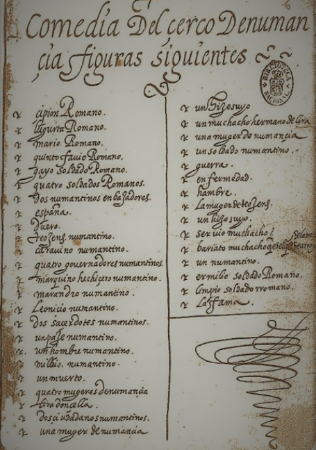 Comedia Del cerco Denuman
çia figuras siguientes
çipion Romano.
Iugurta Romano.
mario Romano.
quinto fauio Romano.
gayo soldado Romano.
quatro soldados Romanos.
Dos numantinos enbaxadores.
españa.
Duero.
teogens. numantino.
Carauino numantino.
quatro gouernadores numantinos
marquino hechicero numantino.
marandro numantino.
Leonicio numantino.
dos saçerdotes numantinos.
un paje numantino.
un hombre numantino.
milbio. numantino.
un muerto.
quatro mugeres de numançia
lira donçella.
dos çiudadanos numantinos.
una muger de numançia
un hijo suyo
un muchacho hermano de lira
una muger de numançia
un soldado numantino.
guerra.
enfermedad.
hambre.
La muger de teogens.
un hijo suyo.
seruio muchacho
bariato muchacho
un numantino.
ermilio soldado Romano.
Limpio soldado rromano.
La ffama